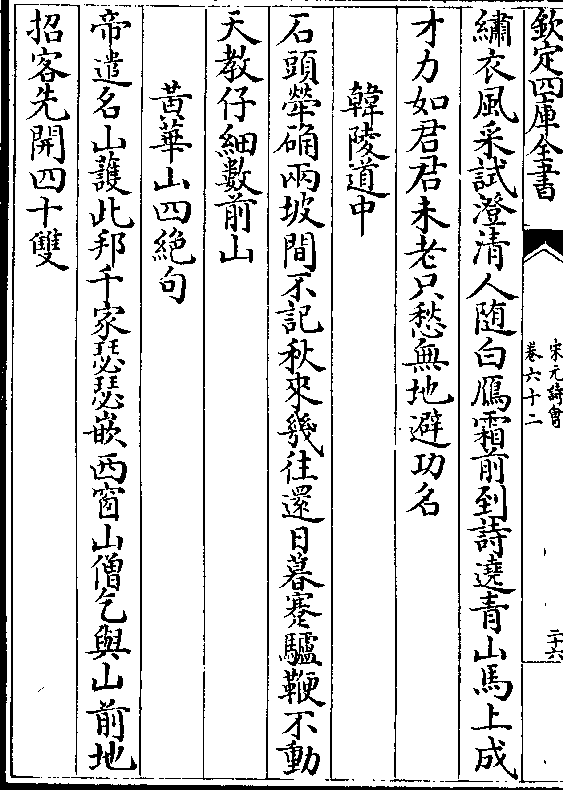 欽定四庫全書
宋元詩會
卷六十二
二十六
繡衣風采試澄清人隨白鴈霜前到詩遶青山馬上成
才力如君君未老只愁無地避功名
韓陵道中
石頭犖确兩坡間不記秋來幾往還日暮蹇驢鞭不動
天教仔細數前山
黄華山四絶句
帝遣名山護此邦千家瑟瑟嵌西窗山僧乞與山前地
招客先開四十雙